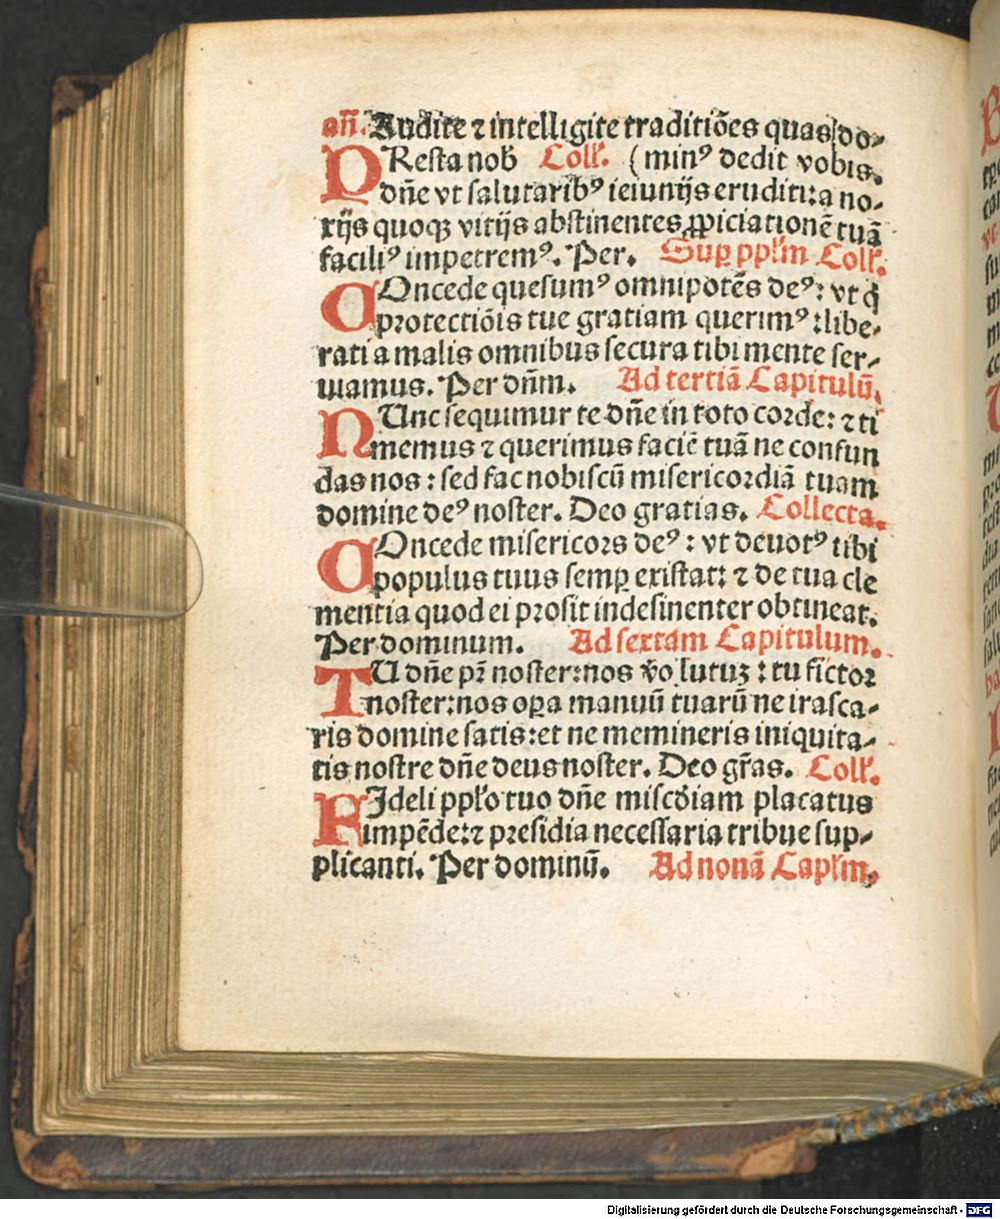 añ. Audite ⁊ intelligite traditiões quas do-
PResta nob̄ Coll'. (minꝰ dedit vobis.
dñe vt salutaribꝰ ieiunijs eruditi: a no-
xijs quoqꝫ vitijs abstinentes ꝓpiciationē tuā
faciliꝰ impetremꝰ. Per. Suꝑ ppl'm Coll'.
COncede quesumꝰ omnipotēs deꝰ: vt q̇
protectiōis tue gratiam querimꝰ: libe-
rati a malis omnibus secura tibi mente ser-
uiamus. Per dñm. Ad tertiā Capitulū.
NUnc sequimur te dñe in toto corde: ⁊ ti
memus ⁊ querimus faciē tuā ne confun
das nos: sed fac nobiscū misericordiā tuam
domine deꝰ noster. Deo gratias. Collecta.
COncede misericors deꝰ: vt deuotꝰ tibi
populus tuus semꝑ existat: ⁊ de tua cle
mentia quod ei prosit indesinenter obtineat.
Per dominum. Ad sextam Capitulum.
TU dñe pr̄ noster: nos v̄o lutuꝫ: tu fictor
noster: nos oꝑa manuū tuarū ne irasca-
ris domine satis: et ne memineris iniquita-
tis nostre dñe deus noster. Deo gr̄as. Coll'.
FIdeli ppl'o tuo dñe mis̄cdiam placatus
impēde: ⁊ presidia necessaria tribue sup-
plicanti. Per dominū. Ad nonā Capl'm.
Digitalisierung gefördert durch die Deutsche Forschungsgemeinschaft - DFG